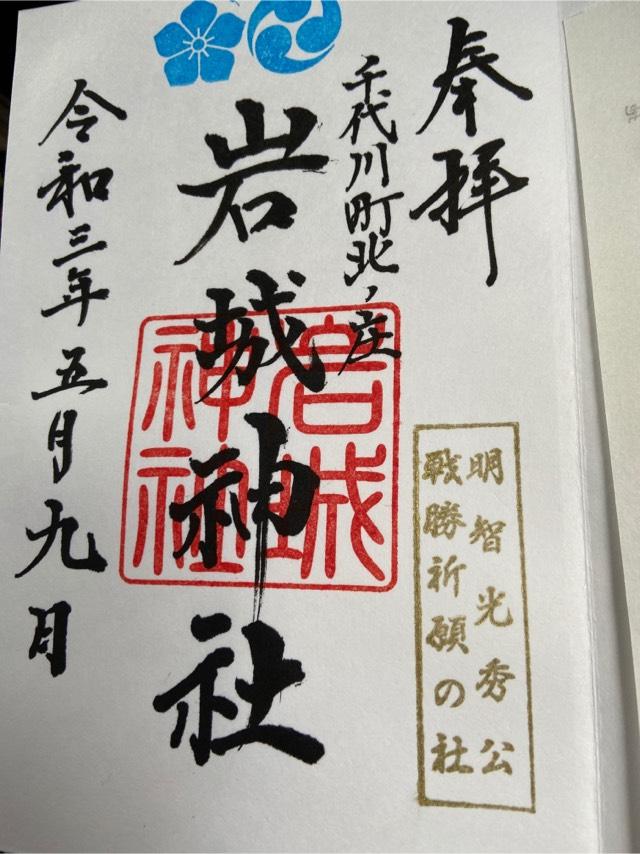 奉拝
千代川町北ノ庄
岩城神社
岩城神社
令和三年五月九日
明智光秀公
戦勝祈願の社